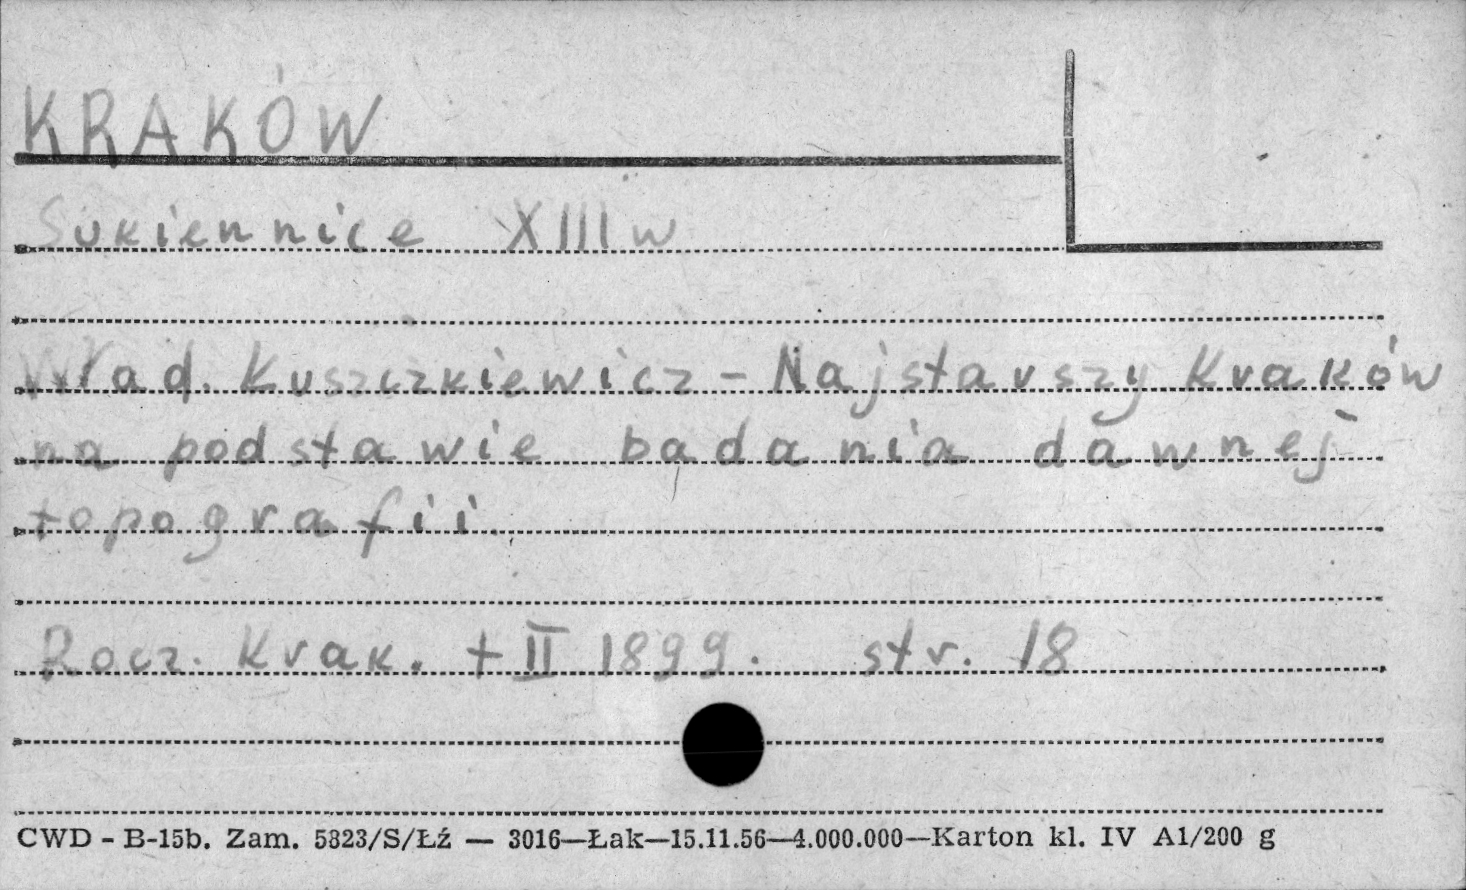 KRAKÓW
Sukiennice XIII w
Wład. Kuszczkiewicz - Najstarszy Kraków
na podstawie badania dawnej
topografii.
Rocz. Krak. t II 1899. str. 18
CWD - B-15b. Zam. 5823/S/Łź — 3016—Łak—15.11.56—4.000.000—Karton kl. IV A1/200 g